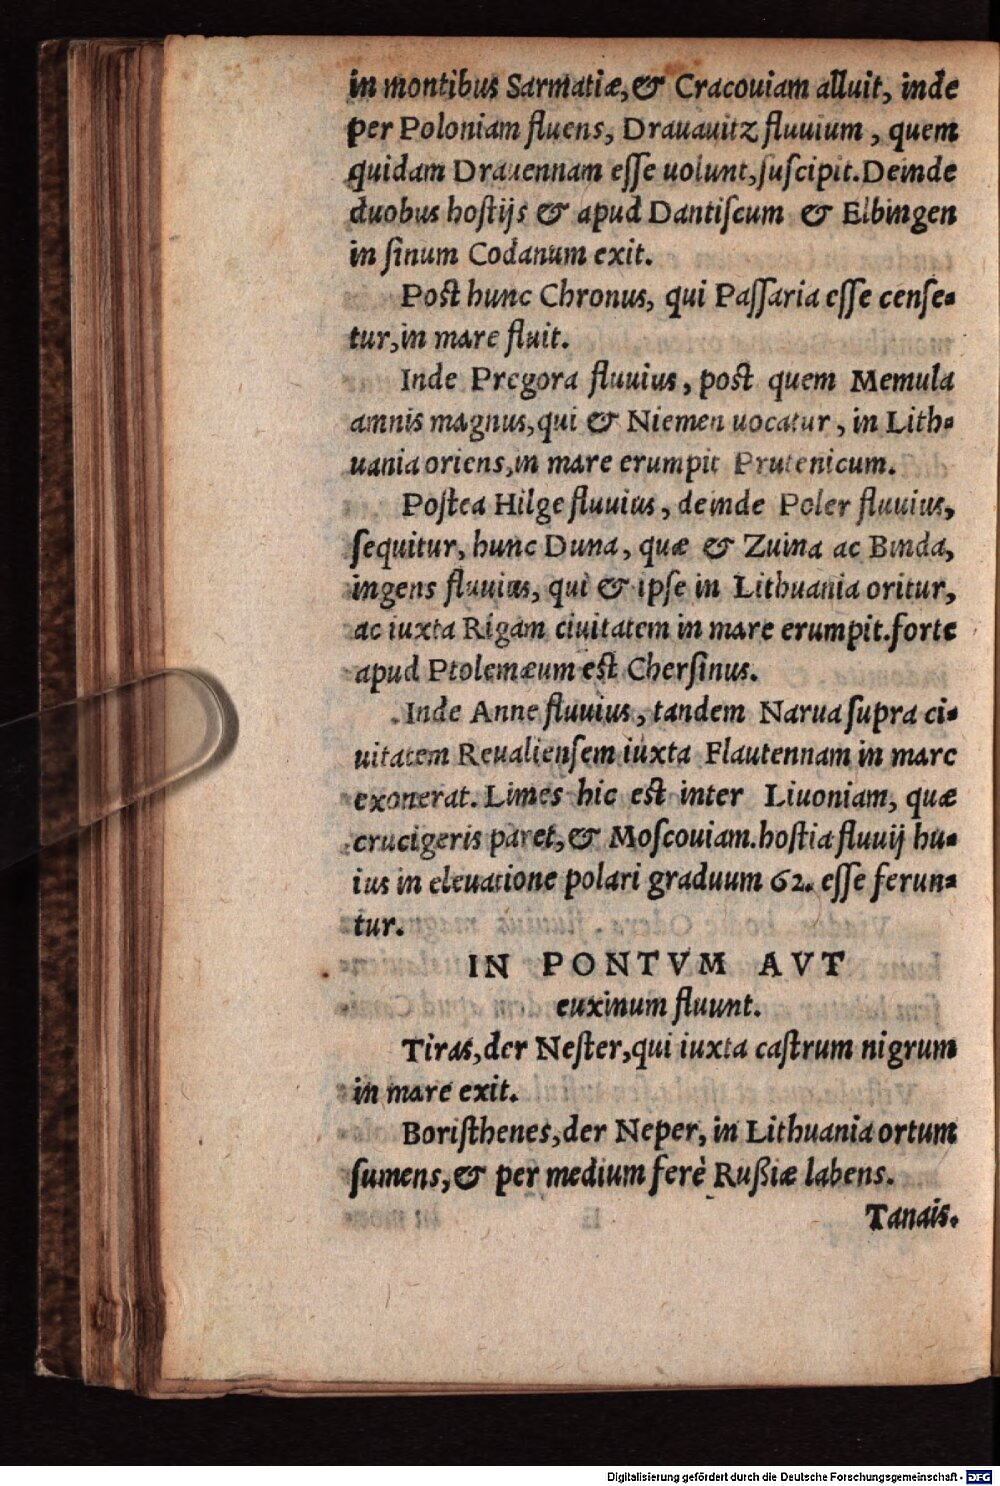 in montibus Sarmatiæ, & Cracouiam alluit, inde
per Poloniam fluens, Drauauitz fluuium, quem
quidam Drauennam eſſe uolunt, ſuſcipit. Deinde
duobus hoſtijs & apud Dantiſcum & Elbingen
in ſinum Codanum exit.
Poſt hunc Chronus, qui Paſſaria eſſe cenſe-
tur, in mare fluit.
Inde Pregora fluuius, poſt quem Memula
amnis magnus, qui & Niemen uocatur, in Lith-
uania oriens, in mare erumpit Prutenicum.
Poſtea Hilge fluuius, deinde Poler fluuius,
ſequitur, hunc Duna, quæ & Zuina ac Binda,
ingens fluuius, qui & ipſe in Lithuania oritur,
ac iuxta Rigam ciuitatem in mare erumpit. forte
apud Ptolemæum eſt Cherſinus.
Inde Anne fluuius, tandem Narua ſupra ci-
uitatem Reualienſem iuxta Flautennam in mare
exonerat. Limes hic est inter Liuoniam, quæ
crucigeris paret, & Moſcouiam. hoſtia fluuij hu-
ius in eleuatione polari graduum 62. eſſe ferun-
tur.
IN PONTVM AVT
euxinum fluunt.
Tiras, der Neſter, qui iuxta caſtrum nigrum
in mare exit.
Boriſthenes, der Neper, in Lithuania ortum
ſumens, & per medium ferè Rußiæ labens.
Tanais.
Digitalisierung gefördert durch die Deutsche Forschungsgemeinschaft - DFG